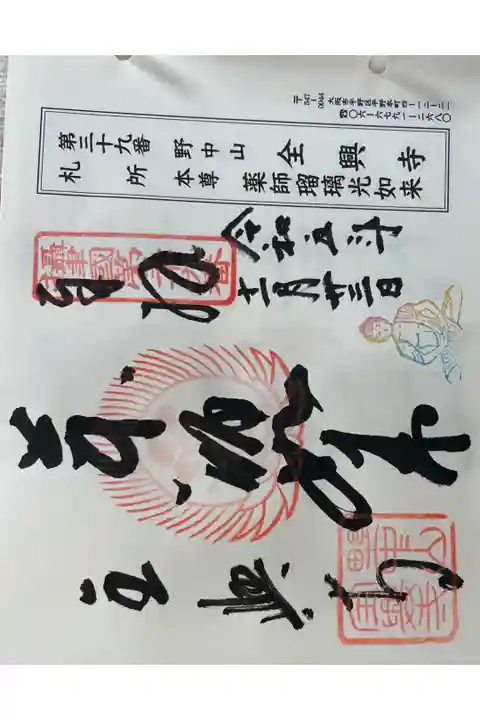 〒547-0044 大阪市平野区平野本町四ー一二ー二一
☎〇六ー六七九一ー二六八〇
第三十九番 野中山 全興寺
札所 本尊 薬師瑠璃光如来
令和五年
十一月廿三日
奉拝
薬師如来
全興寺